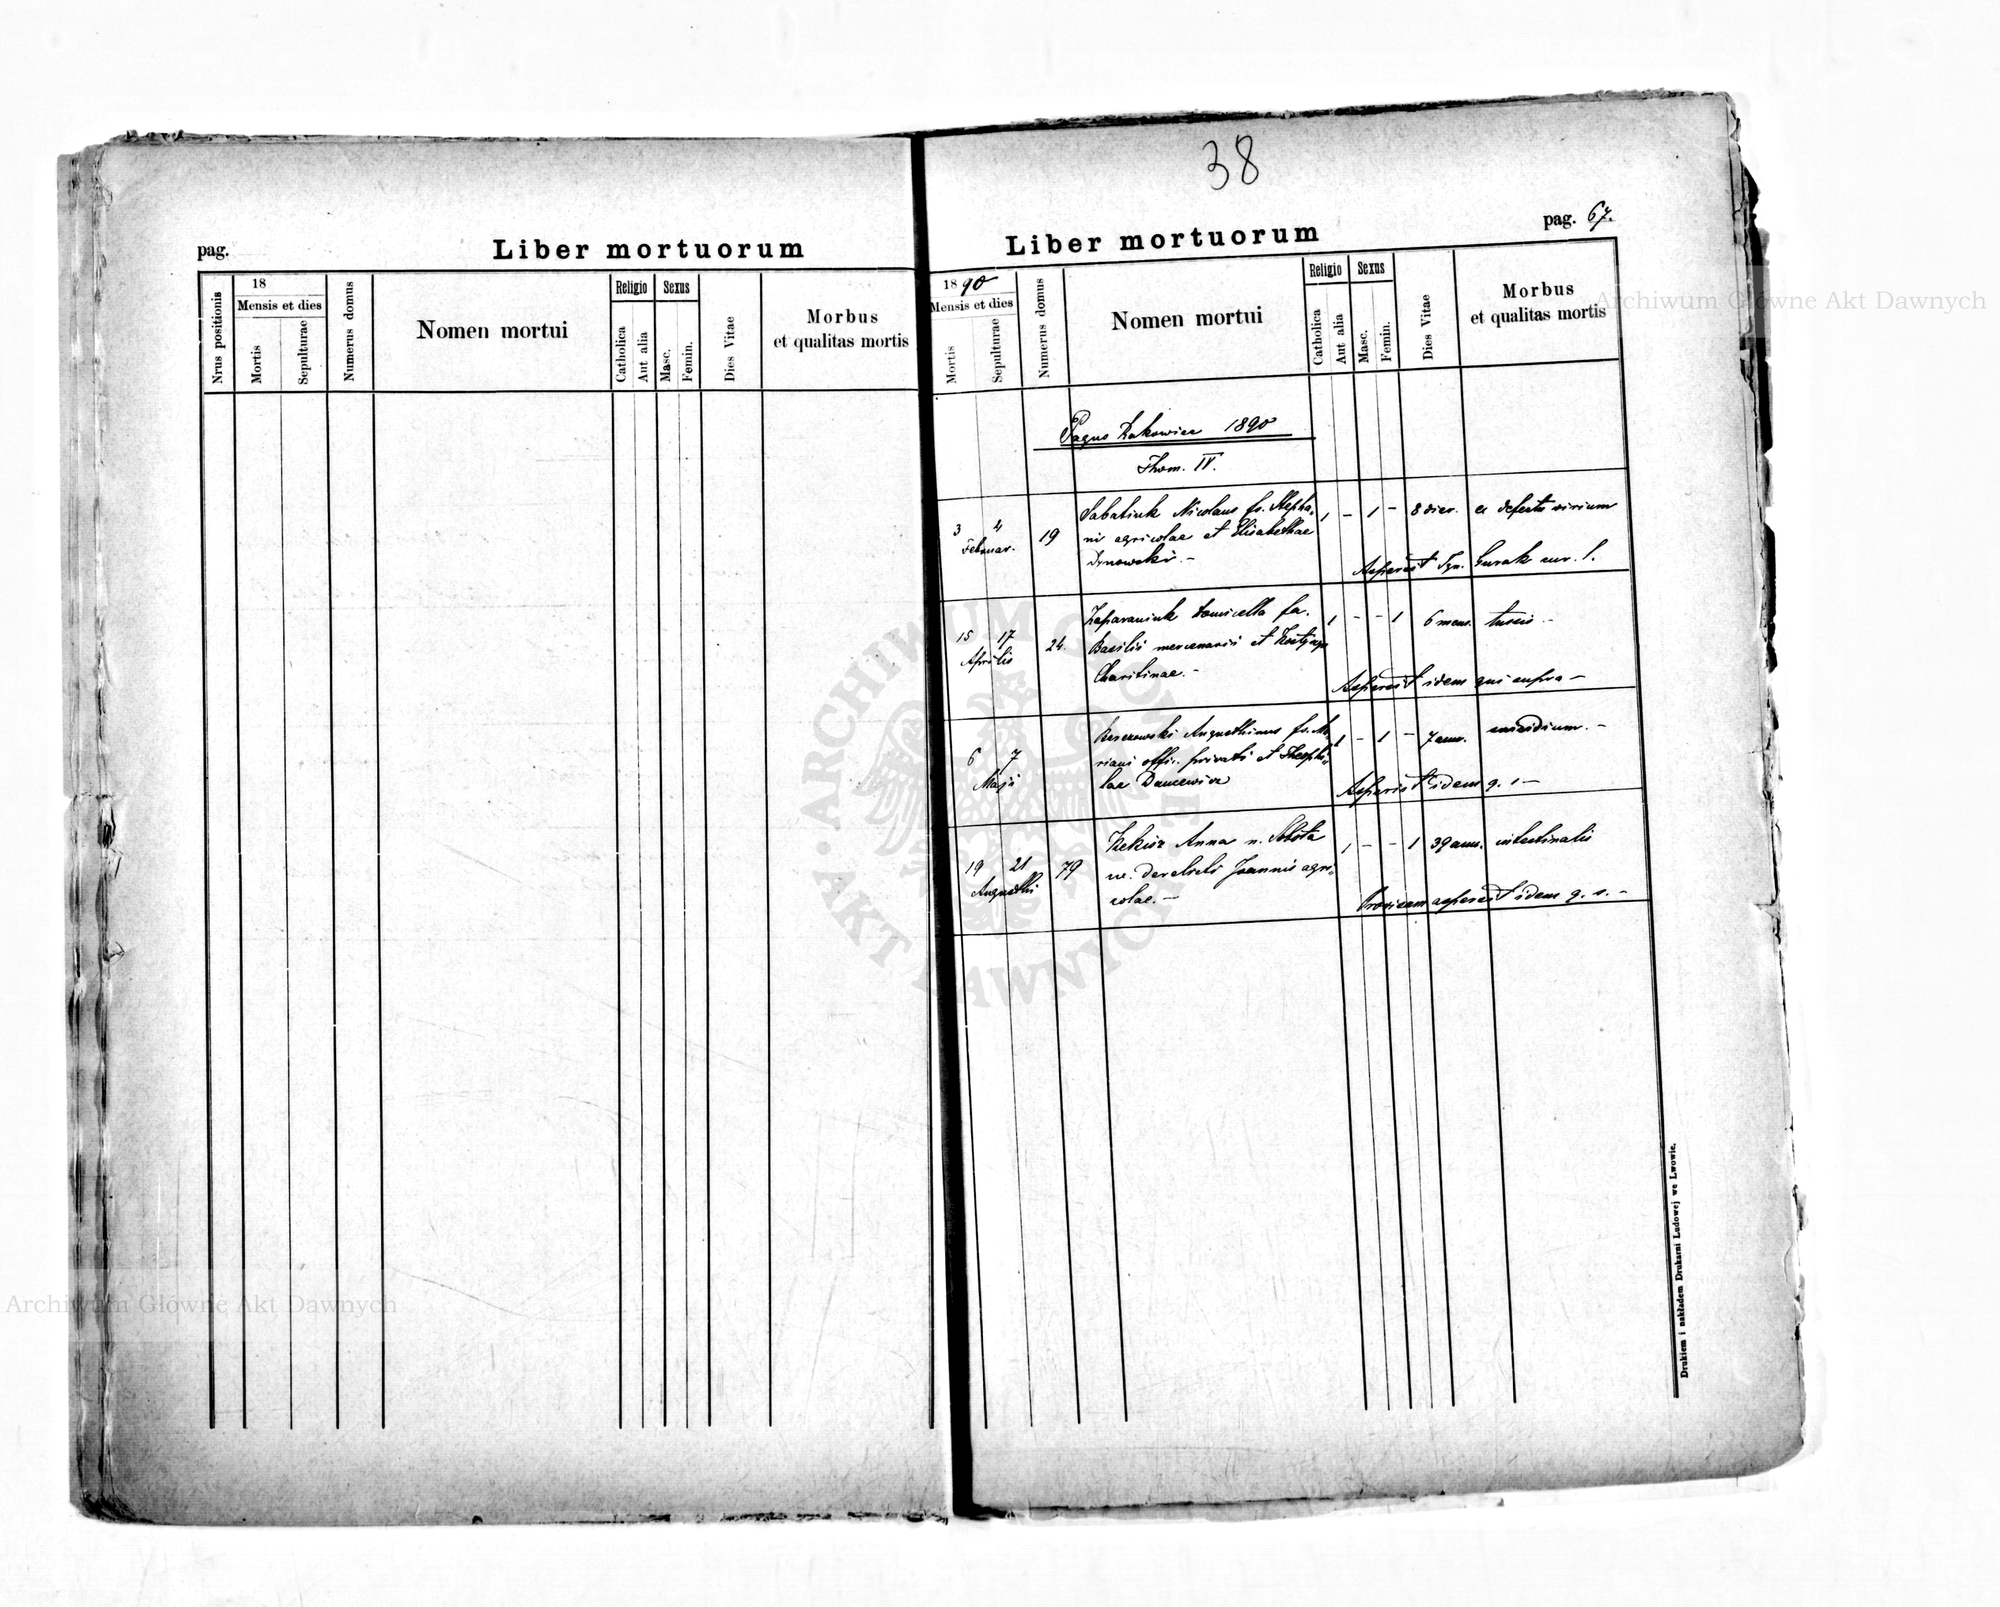 38
pag.
Liber mortuorum
Nrus positionis
18
Mensis et dies
Mortis
Sepulturae
Numerus domus
Nomen mortui
Religio
Catholica
Aut alia
Sexus
Masc.
Femin.
Dies Vitae
Morbus
et qualitas mortis
pag. 67.
Liber mortuorum
1890
Mensis et dies
Mortis
Sepulturae
Numerus domus
Nomen mortui
Religio
Catholica
Aut alia
Sexus
Masc.
Femin.
Dies Vitae
Morbus
et qualitas mortis
Pagus 1890
Thom. IV.
3 4
Februar.
19
Sabatiuk Nicolaus fs. Stepha-
ni agricolae et Elisabethae
1 - 1 - 8 dier. ex defectu virium
Asperсit Ign. cur. l.
15 17
Aprilis
24.
fa.
Basilii mercenarii et
Charitinae. -
1 - - 1 6 mens. tussis -
Aspersit idem qui supra -
6 7
Maji
Augustinus fs. Ma-
riani offic. privati et Theophi-
lae Duncewicz
1 - 1 - 7 ann. -
Aspersit idem q. s -
19 21
Augusti
79
Anna n.
derelicti Joannis agri-
colae. -
1 - - 1 39 ann. intestinalis
Provisam aspersit idem q. s. -
Drukiem i nakładem Drukarni Ludowej we Lwowie.
ARCHIWUM GŁÓWNE
AKT DAWNYCH
Archiwum Główne Akt Dawnych
Archiwum Główne Akt Dawnych